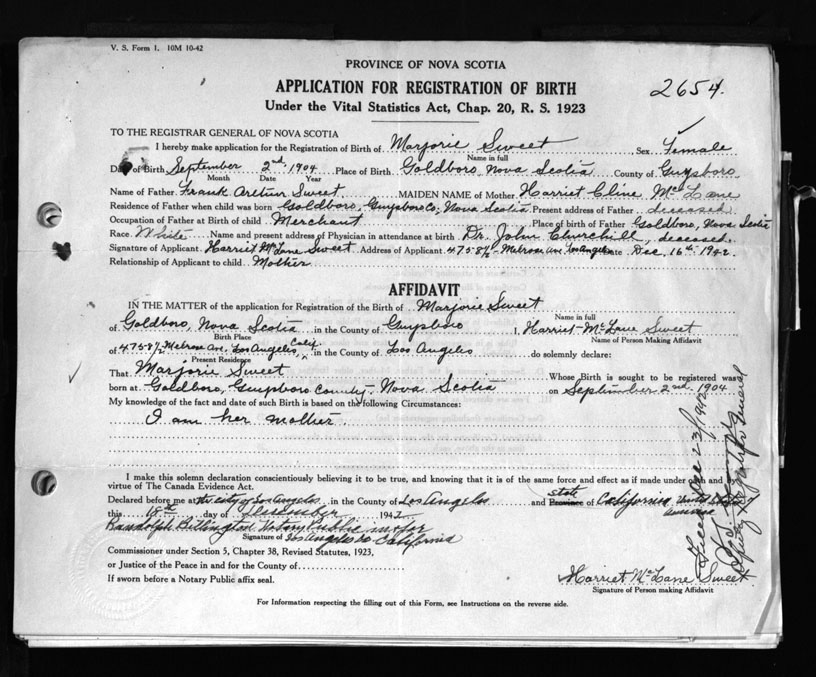 V. S. Form 1. 10M 10-42
PROVINCE OF NOVA SCOTIA
APPLICATION FOR REGISTRATION OF BIRTH
2654.
Under the Vital Statistics Act, Chap. 20, R. S. 1923
TO THE REGISTRAR GENERAL OF NOVA SCOTIA
I hereby make application for the Registration of Birth of Marjorie Sweet Sex Female
Name in full
Date of Birth September 2nd 1904 Place of Birth Goldboro, Nova Scotia County of Guysboro
Month Date Year
Name of Father Frank Arthur Sweet MAIDEN NAME of Mother Harriet Cline McLane
Residence of Father when child was born Goldboro, Guysboro Co., Nova Scotia Present address of Father deceased
Occupation of Father at Birth of child Merchant Place of birth of Father Goldboro, Nova Scotia
Race White Name and present address of Physician in attendance at birth Dr. John Churchill, deceased.
Signature of Applicant Harriet McLane Sweet Address of Applicant 4758½ Melrose Ave. Los Angeles Date Dec. 16th 1942.
Relationship of Applicant to child Mother
AFFIDAVIT
IN THE MATTER of the application for Registration of the Birth of Marjorie Sweet
Name in full
of Goldboro, Nova Scotia in the County of Guysboro I, Harriet McLane Sweet
Birth Place Name of Person Making Affidavit
of 4758½ Melrose Ave, Los Angeles, Calif in the County of Los Angeles do solemnly declare:
Present Residence
That Marjorie Sweet Whose Birth is sought to be registered was
born at Goldboro, Guysboro County, Nova Scotia on September 2nd 1904
My knowledge of the fact and date of such Birth is based on the following Circumstances:
I am her mother.
I make this solemn declaration conscientiously believing it to be true, and knowing that it is of the same force and effect as if made under oath and by
virtue of The Canada Evidence Act.
Declared before me at the city of Los Angeles in the County of Los Angeles and Province state of California United States America
this 18th day of December 1942
Randolph Notary Public in & for
Signature of Los Angeles Co California
Commissioner under Section 5, Chapter 38, Revised Statutes, 1923,
or Justice of the Peace in and for the County of
If sworn before a Notary Public affix seal.
Harriet McLane Sweet
Signature of Person making Affidavit
For Information respecting the filling out of this Form, see Instructions on the reverse side.
Dec 23/1942